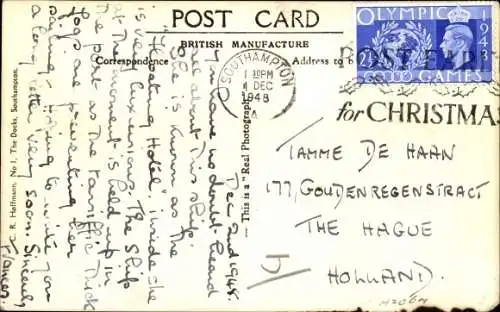 POST CARD
BRITISH MANUFACTURE
Correspondence
Address to b
OLYMPIC
GAMES
1948
2½
SOUTHAMPTON
PM
DEC
1948
A
POST EARLY
for CHRISTMAS
TAMME DE HAAN
177, GOUDENREGENSTRACT
THE HAGUE
HOLLAND.
Dec 2nd 1948.
You have no doubt heard
all about this ship.
She is known as the
"Floating Hotel", inside she
is very luxurious. The ship
at the moment is held up in
the port as the terriffic thick
fogs are preventing her
sailing. Hoping to write you
a long letter very soon. Sincerely
Frances.
This is a "Real Photograph"
R. Hoffmann, No 1, The Docks, Southampton.